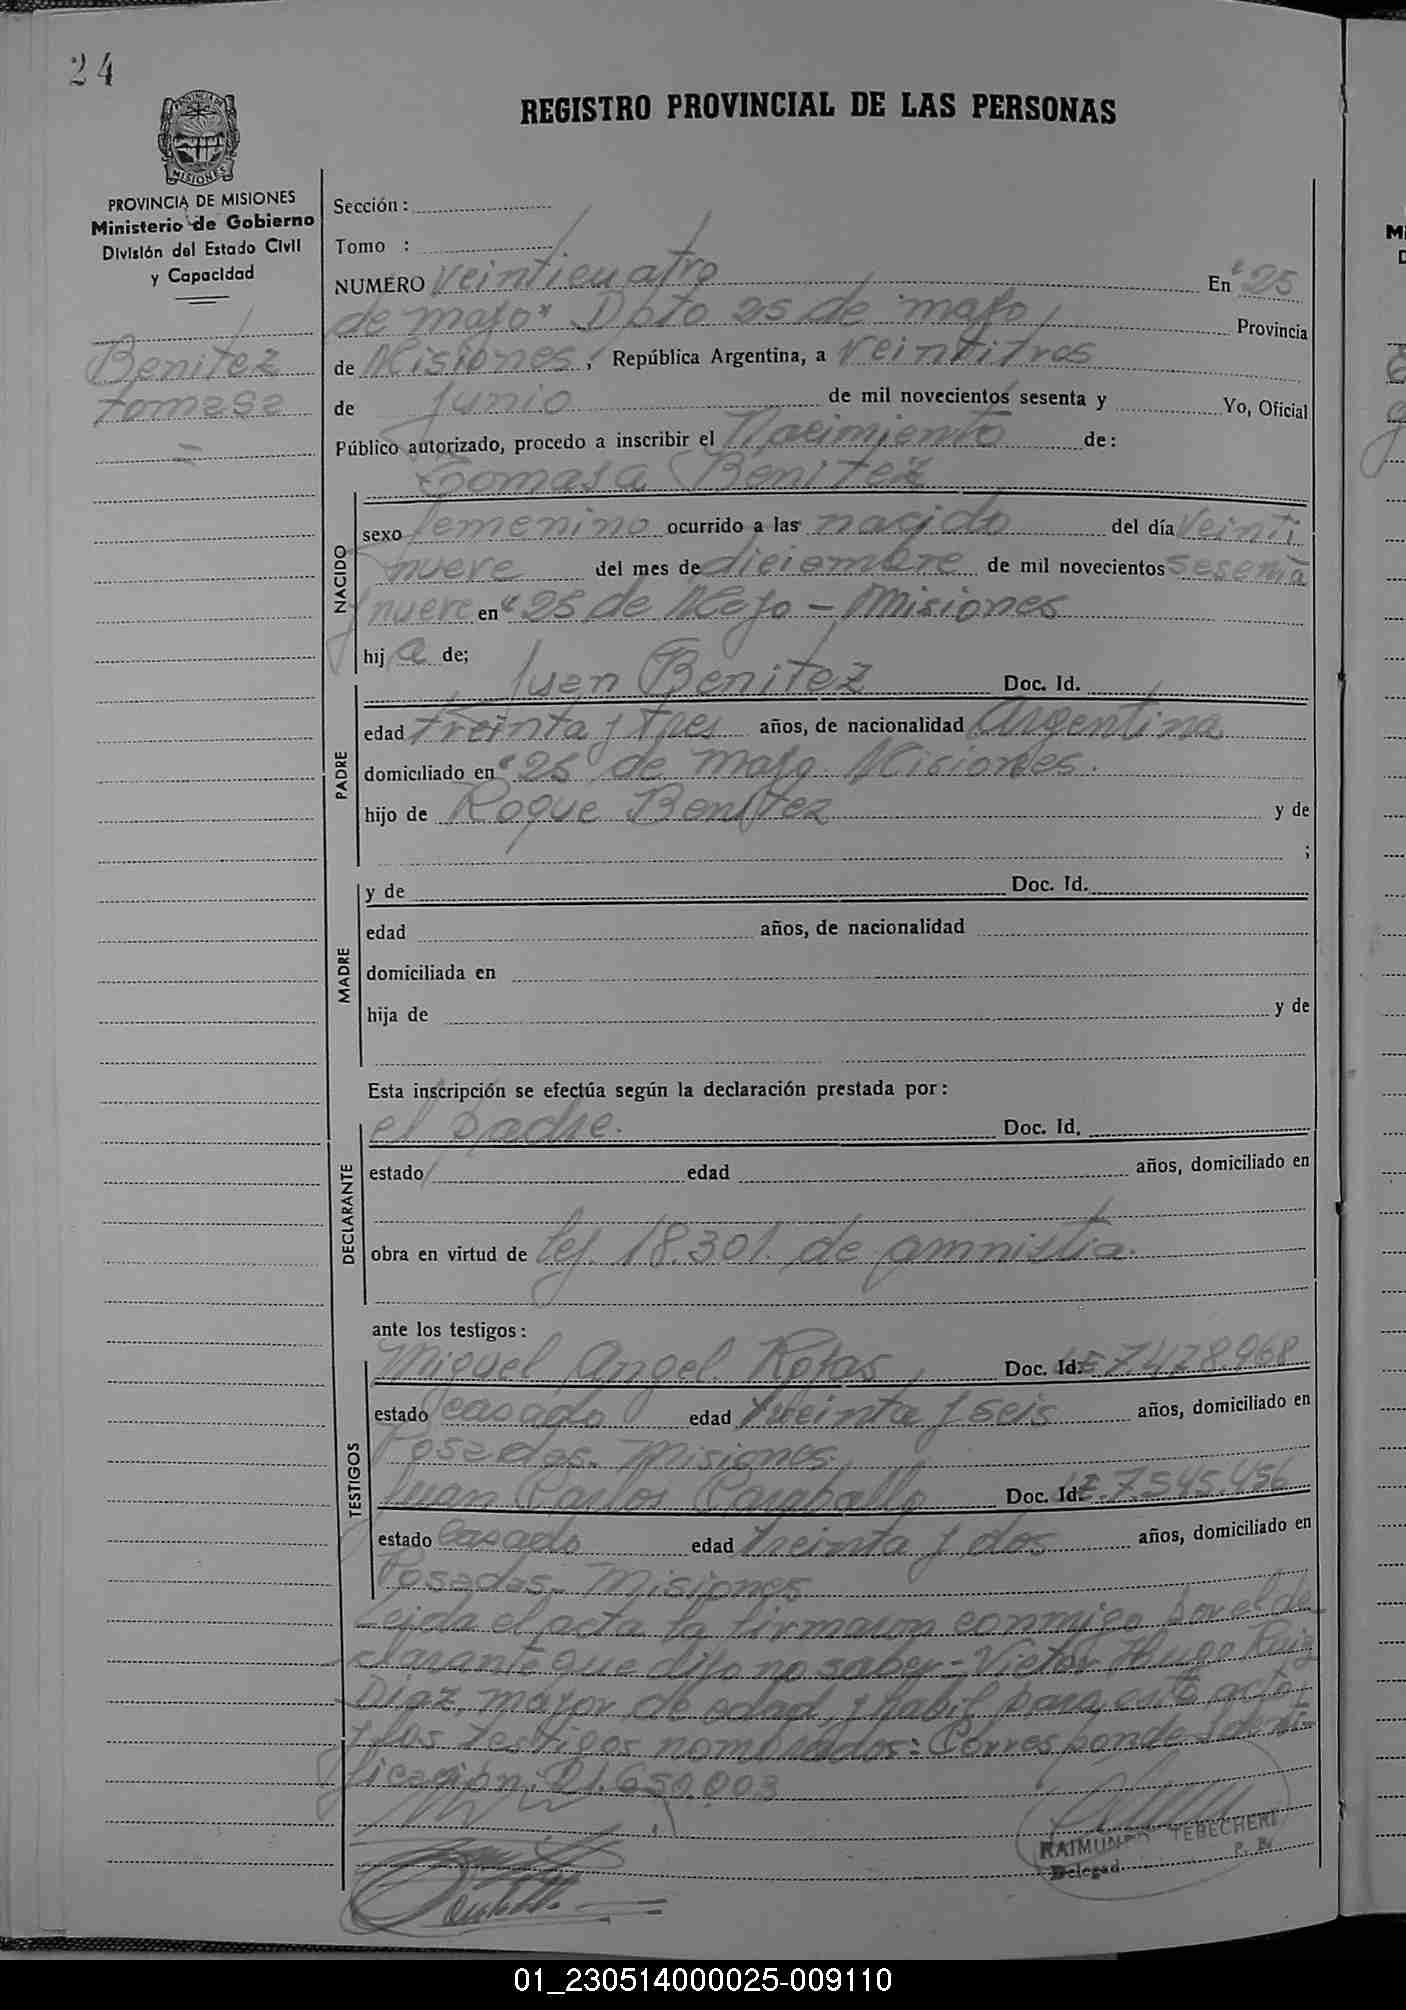 24
MISIONES
REGISTRO PROVINCIAL DE LAS PERSONAS
PROVINCIA DE MISIONES
Ministerio de Gobierno
División del Estado Civil
y Capacidad
Benitez
tomasa
Sección:
Tomo :
NUMERO Veinticuatro En "25
de mayo" Dpto 25 de mayo Provincia
de Misiones, República Argentina, a Veintitres
de junio de mil novecientos sesenta y Yo, Oficial
Público autorizado, procedo a inscribir el Nacimiento de:
Tomasa Benitez
NACIDO
sexo femenino ocurrido a las nacido del día Veinti
nueve del mes de diciembre de mil novecientos sesenta
y nueve en "25 de Mayo - Misiones
hij a de;
Juan Benitez Doc. Id.
PADRE
edad treinta y tres años, de nacionalidad Argentina
domiciliado en "25 de mayo Misiones.
hijo de Roque Benitez y de
;
MADRE
y de Doc. Id.
edad años, de nacionalidad
domiciliada en
hija de y de
Esta inscripción se efectúa según la declaración prestada por:
DECLARANTE
el padre. Doc. Id.
estado edad años, domiciliado en
obra en virtud de ley 18.301. de amnistia.
ante los testigos:
TESTIGOS
Miguel Angel Rojas Doc. Id. LE 7.478.068
estado casado edad treinta y seis años, domiciliado en
Posadas. Misiones.
Juan Carlos Caraballo Doc. Id. LE.7.545.456
estado casado edad treinta y dos años, domiciliado en
Posadas. Misiones
Leida el acta la firmaron conmigo por el de
clarante que dijo no saber - Victor Hugo Ruiz
Diaz, mayor de edad, y habil para este acto
y los testigos nombrados: Corresponde Identi-
ficación: 21.650.003
RAIMUNDO TEBECHERI
Delegad
01_230514000025-009110